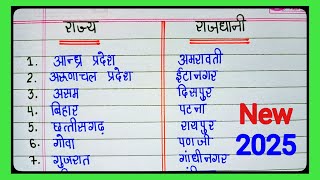 राज्य राजधानी
1. आन्ध्र प्रदेश अमरावती
2. अरूणाचल प्रदेश ईटानगर
3. असम दिसपुर
4. बिहार पटना
5. छत्तीसगढ़ रायपुर
6. गोवा पणजी
7. गुजरात गांधीनगर
New
2025